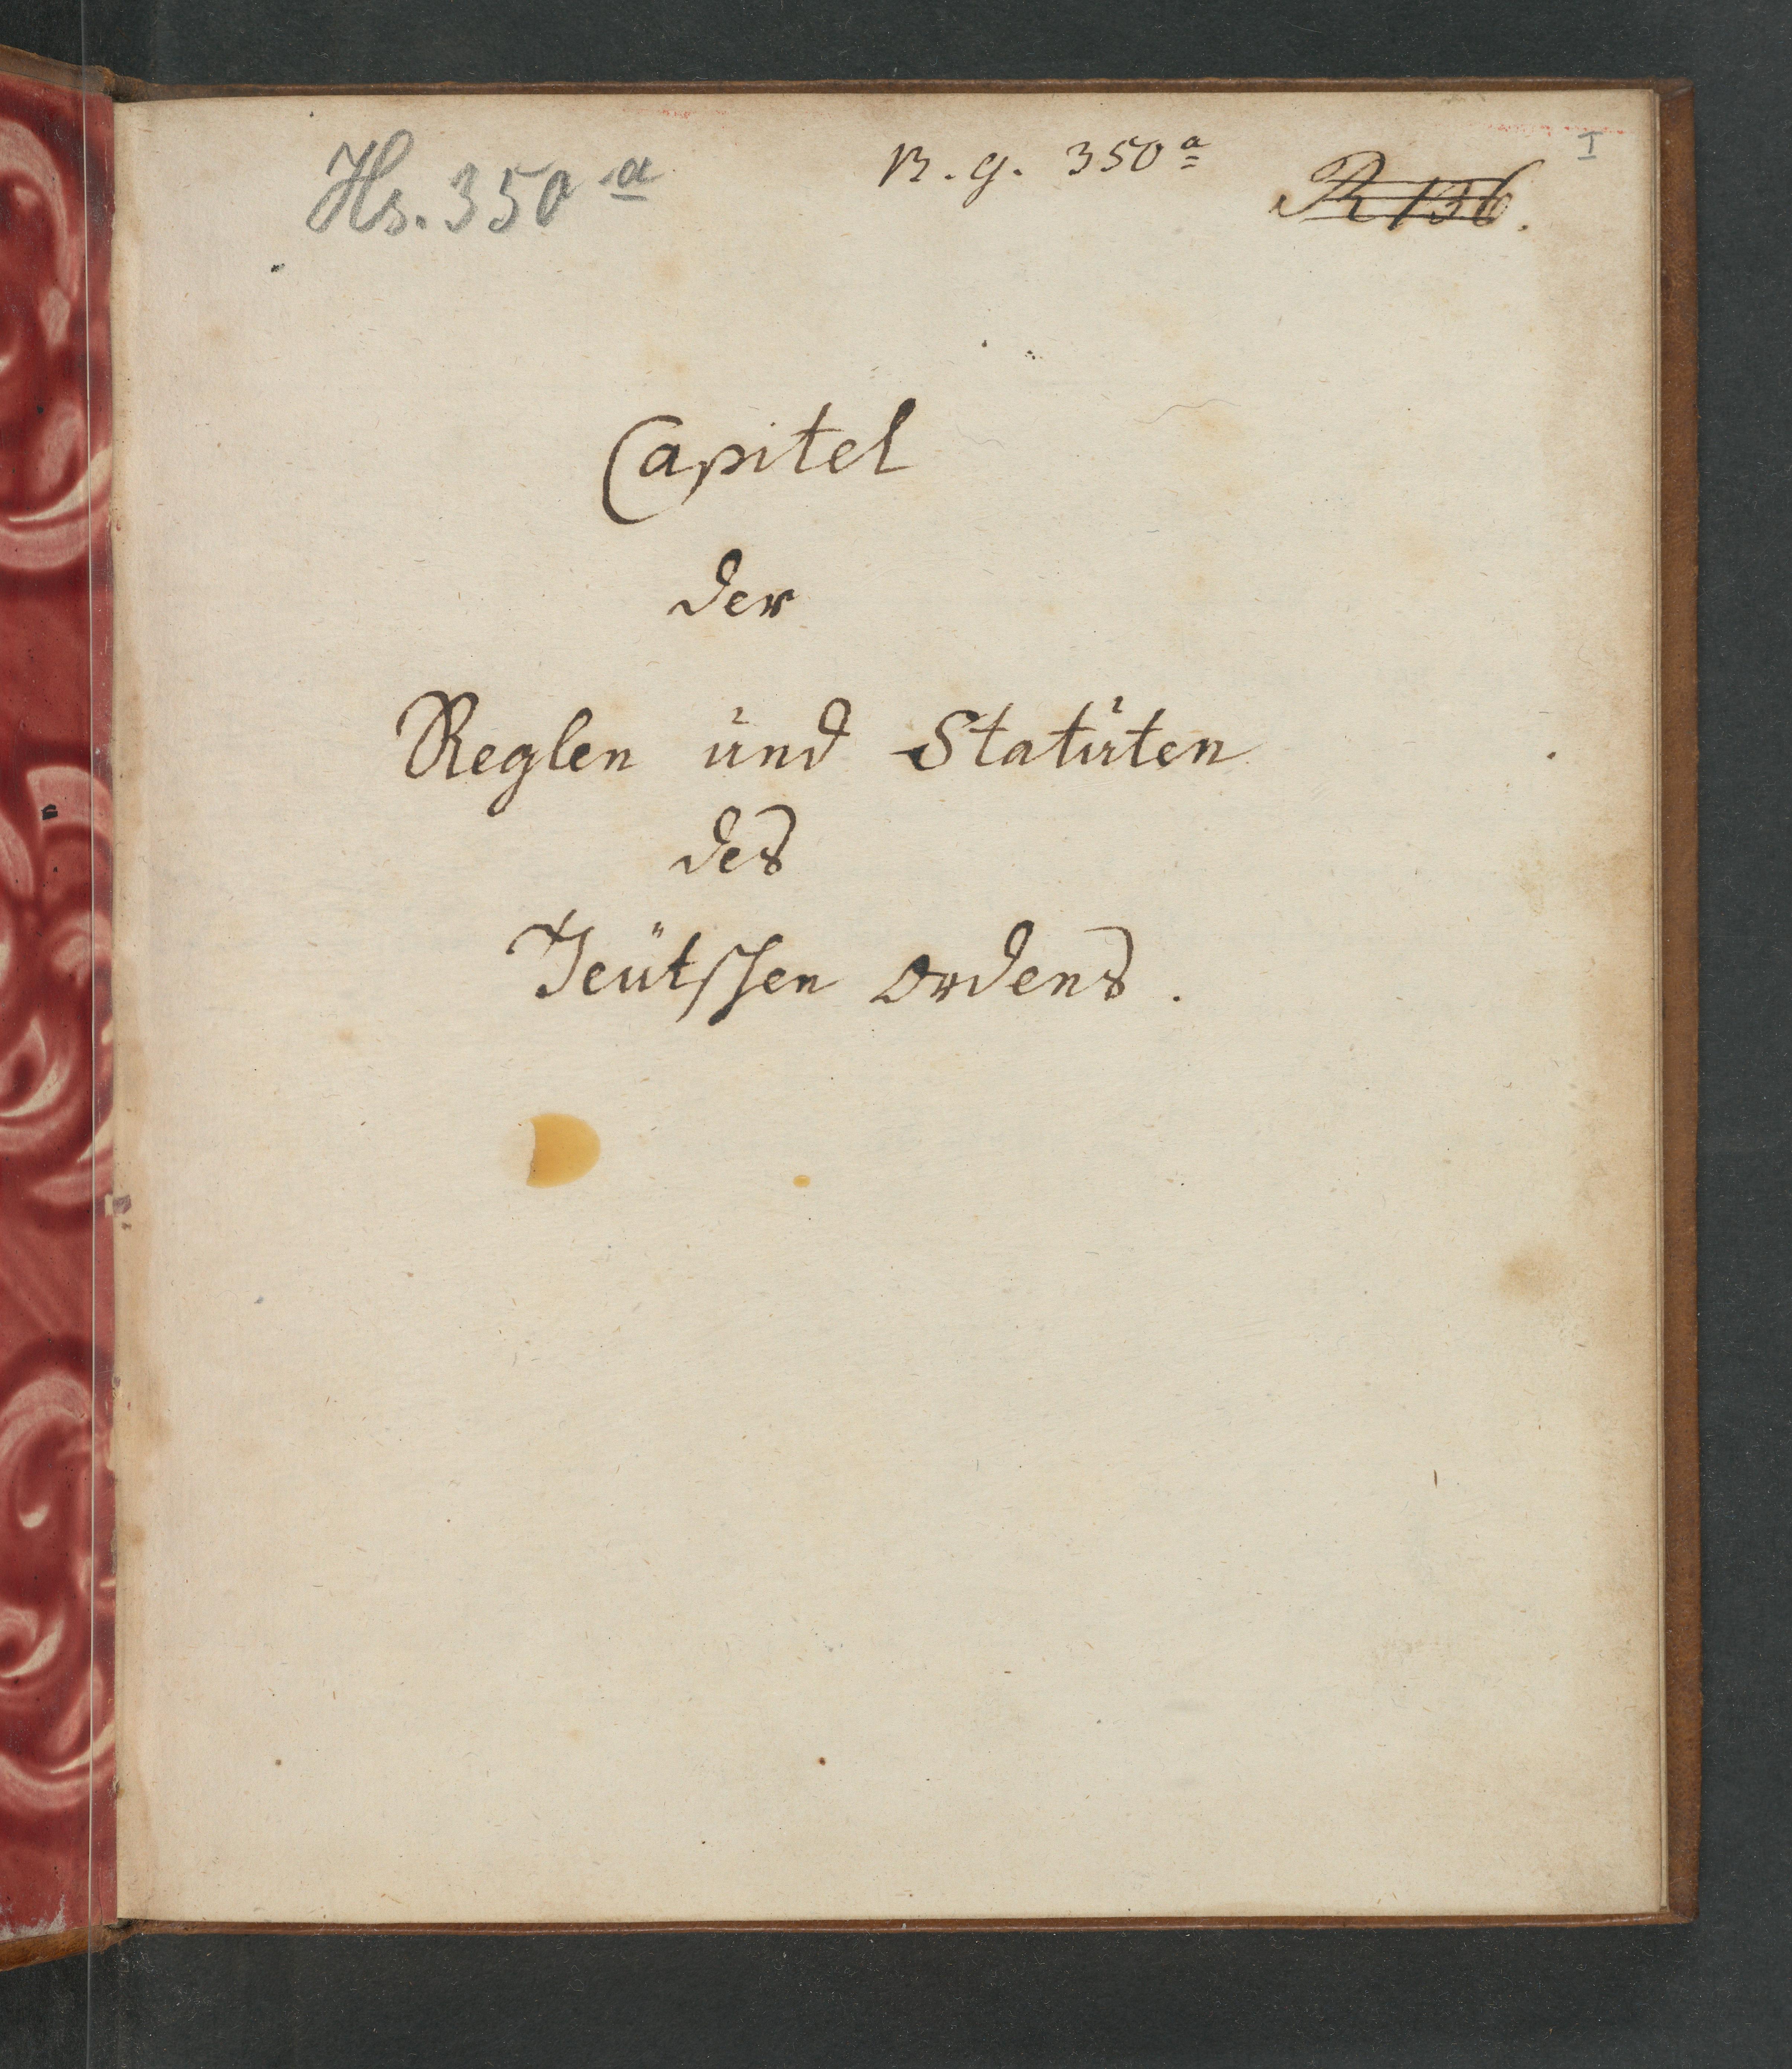 Hs. 350 a
B. G. 350 a
R 136.
I
Capitel
der
Reglen und Statuten
des
Teütschen Ordens.